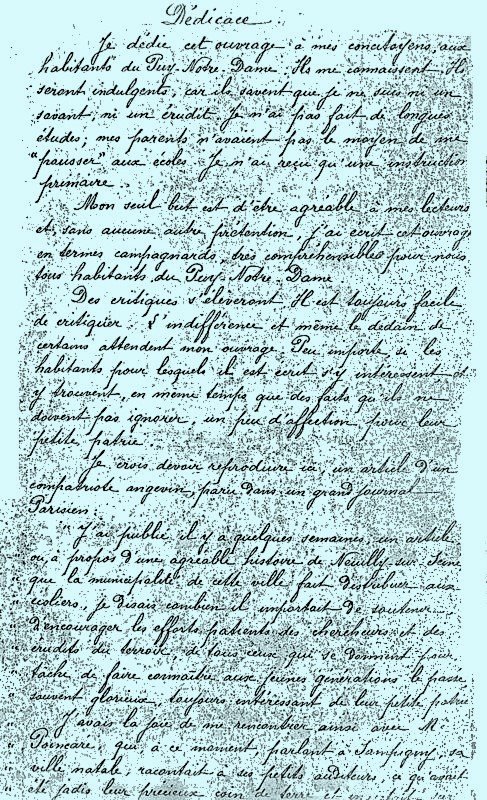 Dédicace
Je dédie cet ouvrage à mes concitoyens, aux
habitants du Puy-Notre-Dame. Ils me connaissent. Ils
seront indulgents, car ils savent que je ne suis ni un
savant, ni un érudit. Je n'ai pas fait de longues
études; mes parents n'avaient pas le moyen de me
"pousser" aux écoles. Je n'ai reçu qu'une instruction
primaire.
Mon seul but est d'être agréable à mes lecteurs
et, sans aucune autre prétention, j'ai écrit cet ouvrage
en termes campagnards, très compréhensibles pour nous
tous habitants du Puy-Notre-Dame.
Des critiques s'élèveront. Il est toujours facile
de critiquer. L'indifférence et même le dédain de
certains attendent mon ouvrage. Peu importe, si les
habitants pour lesquels il est écrit s'y intéressent et
y trouvent, en même temps que des faits qu'ils ne
doivent pas ignorer, un peu d'affection pour leur
petite patrie.
Je crois devoir reproduire ici, un article d'un
compatriote angevin, paru dans un grand journal
Parisien.
"J'ai publié, il y a quelques semaines, un article
où, à propos d'une agréable histoire de Neuilly-sur-Seine
que la municipalité de cette ville fait distribuer aux
écoliers, je disais combien il importait de soutenir
d'encourager les efforts patients des chercheurs et des
érudits du terroir, de tous ceux qui se donnent pour
tâche de faire connaître aux jeunes générations le passé
souvent glorieux, toujours intéressant de leur petite patrie.
J'avais la joie de me rencontrer ainsi avec Mr
Poincaré, qui à ce moment, parlant à Sampigny, sa
ville natale, racontait à ses petits auditeurs, ce qu'avait
été jadis leur précieux coin de terre et